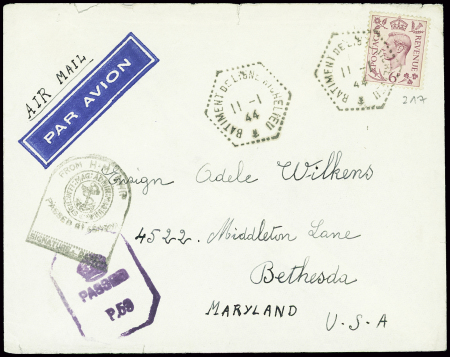 AIR MAIL
PAR AVION
BATIMENT DE LIGNE RICHELIEU
11-1
44
BATIMENT DE LIGNE
11
44
POSTAGE REVENUE
6D
217
FROM H.M. SHIP
PASSED BY
SIGNATURE
PASSED
P.59
Ensign Adele Wilkens
4522 Middleton Lane
Bethesda
MARYLAND
U.S.A